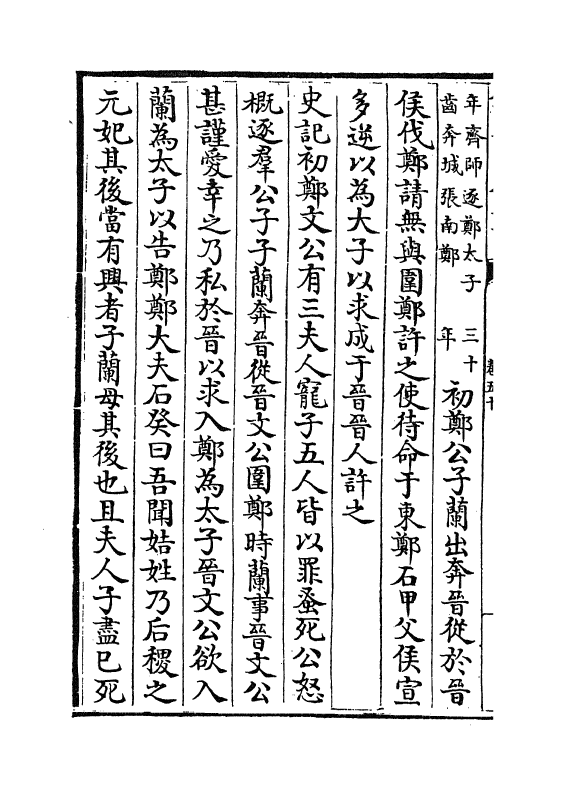 年齊師逐鄭太子
齒奔城張南鄭
三十
年
初鄭公子蘭出奔晉從於晉
侯伐鄭請無與圍鄭許之使待命于東鄭石甲父侯宣
多逆以為大子以求成于晉晉人許之
史記初鄭文公有三夫人寵子五人皆以罪蚤死公怒
概逐羣公子子蘭奔晉從晉文公圍鄭時蘭事晉文公
甚謹愛幸之乃私於晉以求入鄭為太子晉文公欲入
蘭為太子以告鄭鄭大夫石癸曰吾聞姞姓乃后稷之
元妃其後當有興者子蘭母其後也且夫人子盡已死